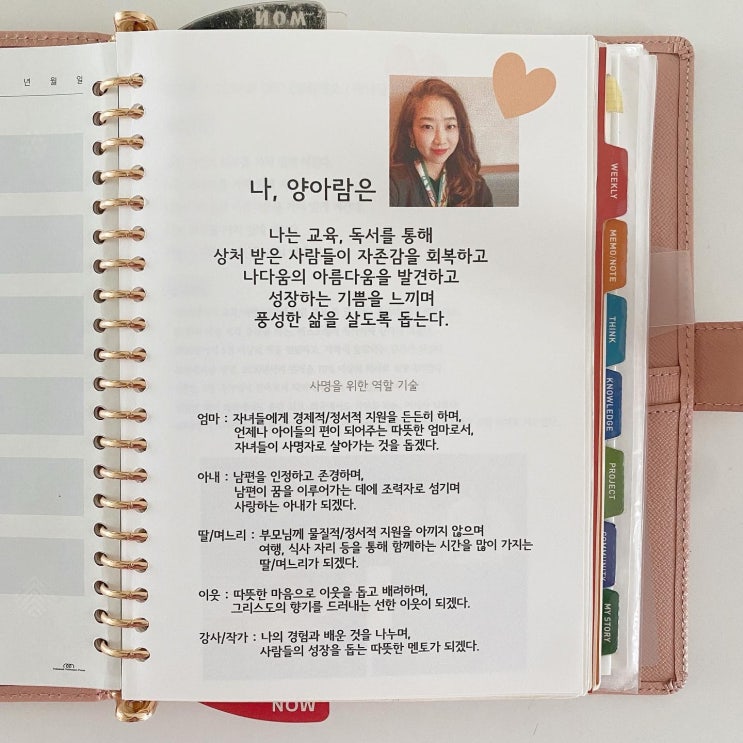 NOW
년 월 일
나, 양아람은
나는 교육, 독서를 통해
상처 받은 사람들이 자존감을 회복하고
나다움의 아름다움을 발견하고
성장하는 기쁨을 느끼며
풍성한 삶을 살도록 돕는다.
사명을 위한 역할 기술
엄마 : 자녀들에게 경제적/정서적 지원을 든든히 하며,
언제나 아이들의 편이 되어주는 따뜻한 엄마로서,
자녀들이 사명자로 살아가는 것을 돕겠다.
아내 : 남편을 인정하고 존경하며,
남편이 꿈을 이루어가는 데에 조력자로 섬기며
사랑하는 아내가 되겠다.
딸/며느리 : 부모님께 물질적/정서적 지원을 아끼지 않으며
여행, 식사 자리 등을 통해 함께하는 시간을 많이 가지는
딸/며느리가 되겠다.
이웃 : 따뜻한 마음으로 이웃을 돕고 배려하며,
그리스도의 향기를 드러내는 선한 이웃이 되겠다.
강사/작가 : 나의 경험과 배운 것을 나누며,
사람들의 성장을 돕는 따뜻한 멘토가 되겠다.
WEEKLY
MEMO/NOTE
THINK
KNOWLEDGE
PROJECT
COMMUNITY
MY STORY
NOW